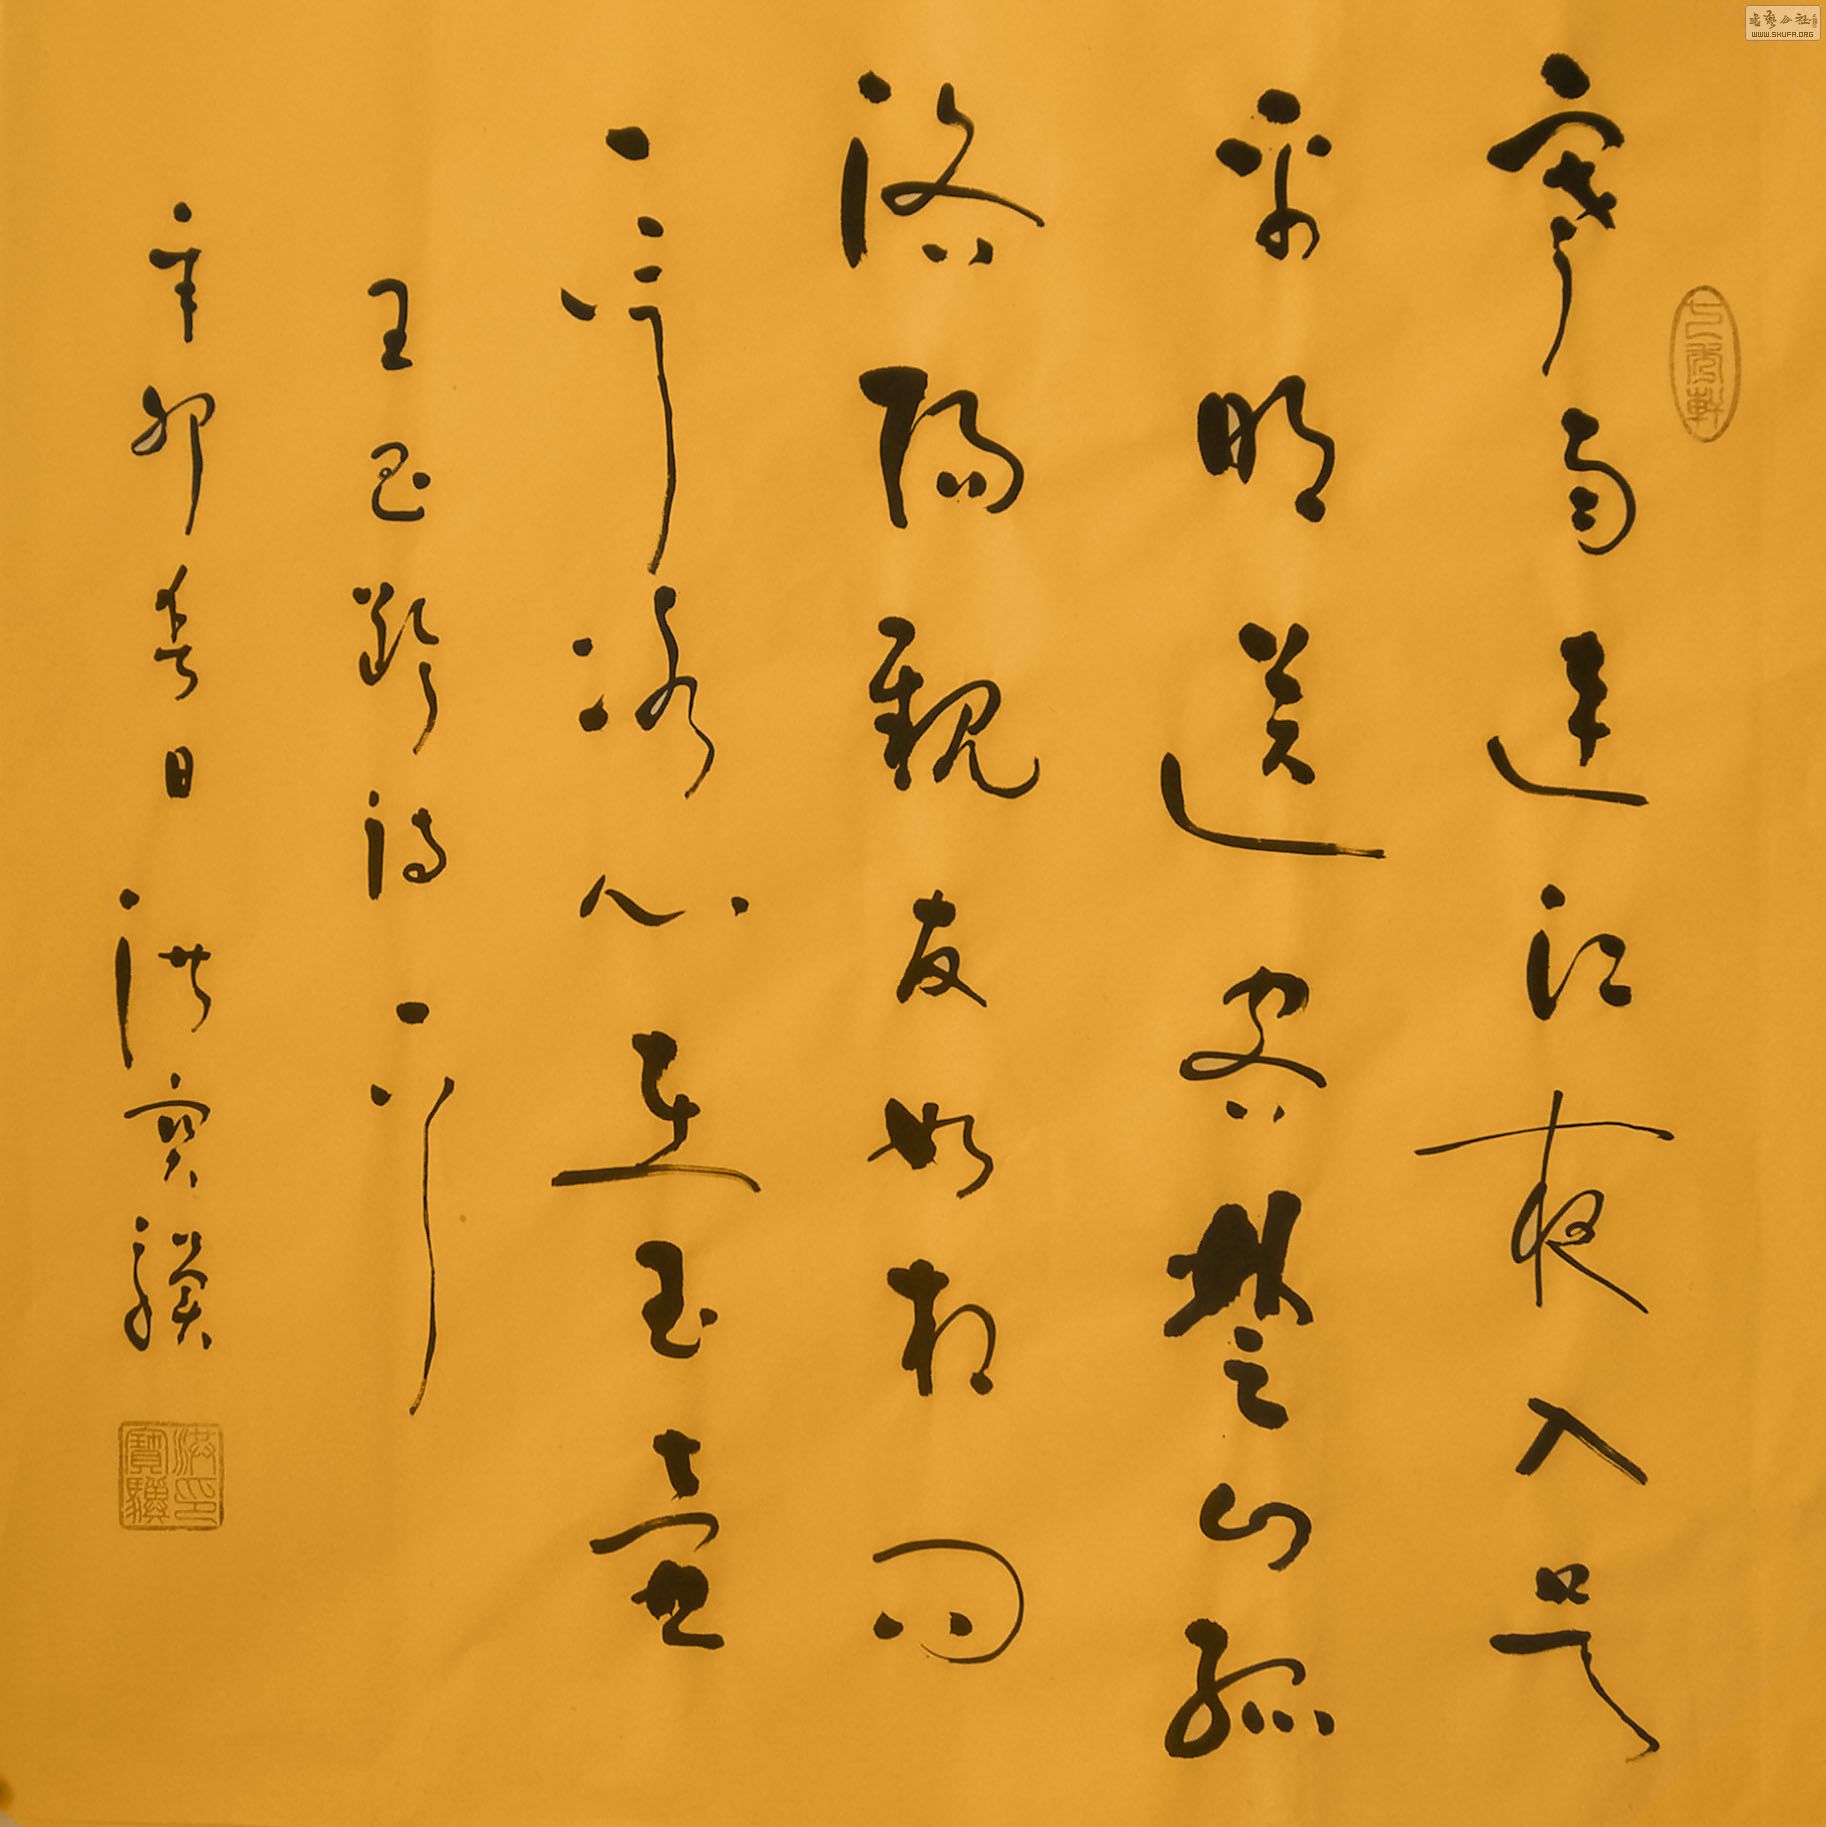 寒雨連江夜入吳
平明送客楚山孤
洛陽親友如相問
一片冰心在玉壺
王昌齡詩一首
辛卯春日洪寶驥
洪印寶驥
書藝公社
WWW.SHUFA.ORG